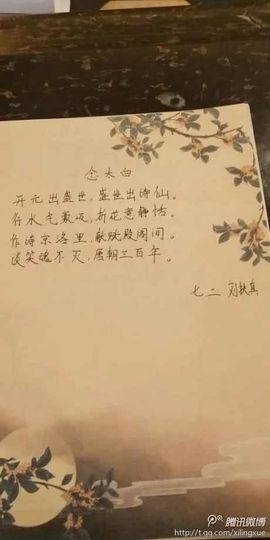 念太白
开元出盛世，盛世出诗仙。
行水气蒙返，折花意静恬。
作诗京洛里，献赋殿阁间。
谈笑魂不灭，唐朝三百年。
七二 刘轶真
腾讯微博
http://t.qq.com/xilingxue